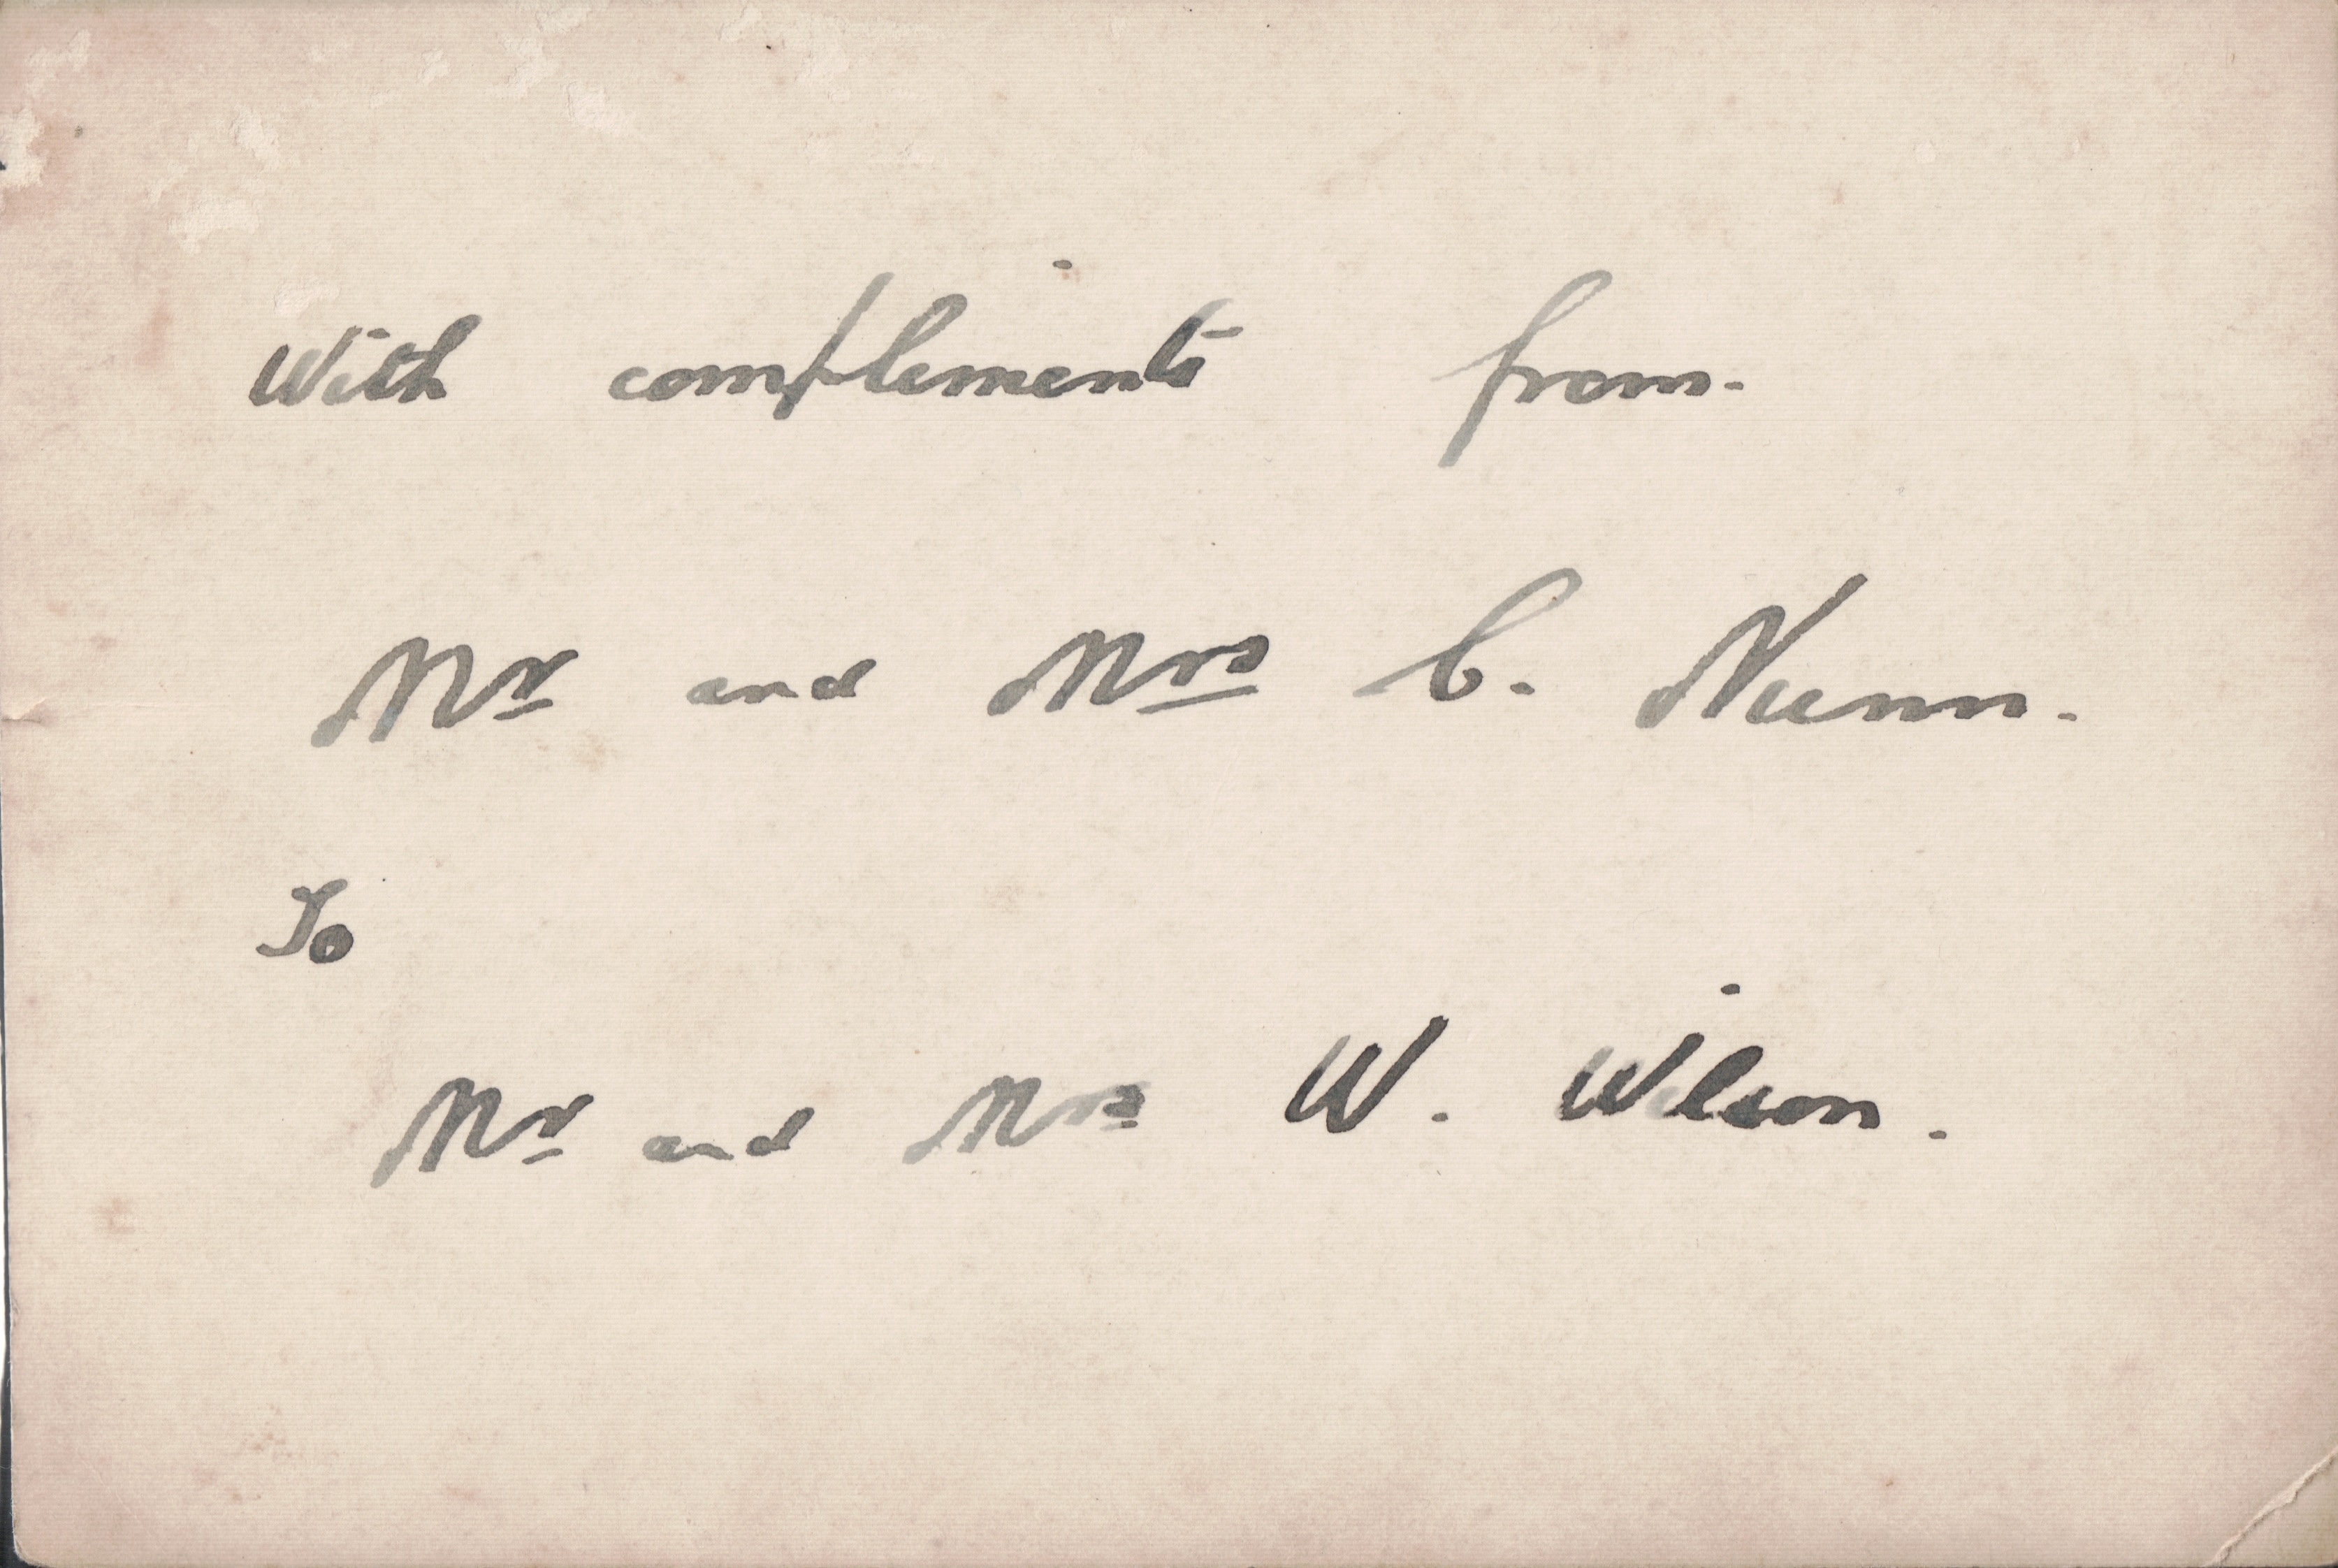 With complements from.
Mr and Mrs C. Nunn.
To
Mr and Mrs W. Wilson.